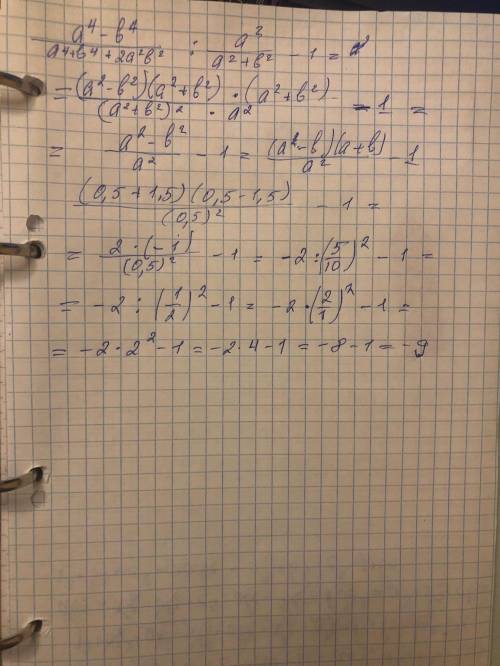 (a⁴ - b⁴)/(a⁴ + b⁴ + 2a²b²) : a²/(a² + b²) - 1 =
= (a² - b²)(a² + b²) · (a² + b²)/((a² + b²)² · a²) - 1 =
= (a² - b²)/a² - 1 = (a - b)(a + b)/a² - 1
(0,5 + 1,5)(0,5 - 1,5)/(0,5)² - 1 =
= 2 · (-1)/(0,5)² - 1 = -2 : (5/10)² - 1 =
= -2 : (1/2)² - 1 = -2 · (2/1)² - 1 =
= -2 · 2² - 1 = -2 · 4 - 1 = -8 - 1 = -9